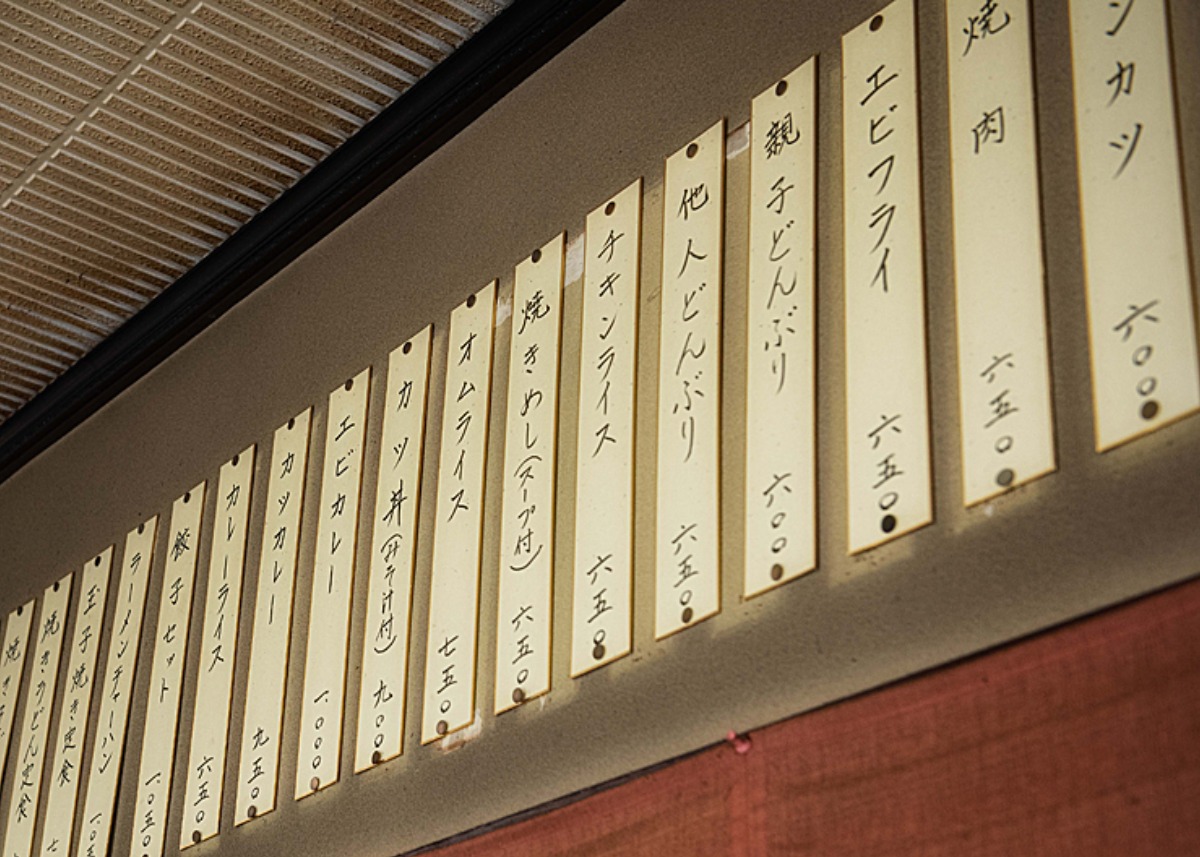 ンカツ 六〇〇
焼肉 六五〇
エビフライ 六五〇
親子どんぶり 六〇〇
他人どんぶり 六五〇
チキンライス 六五〇
焼きめし(スープ付) 六五〇
オムライス 七五〇
カツ丼(みそ汁付) 九〇〇
エビカレー 一、〇〇〇
カツカレー 九五〇
カレーライス 六五〇
餃子セット 一、〇五〇
ラーメンチャーハン 一、〇五
玉子焼き定食 七
焼きうどん定食
焼き